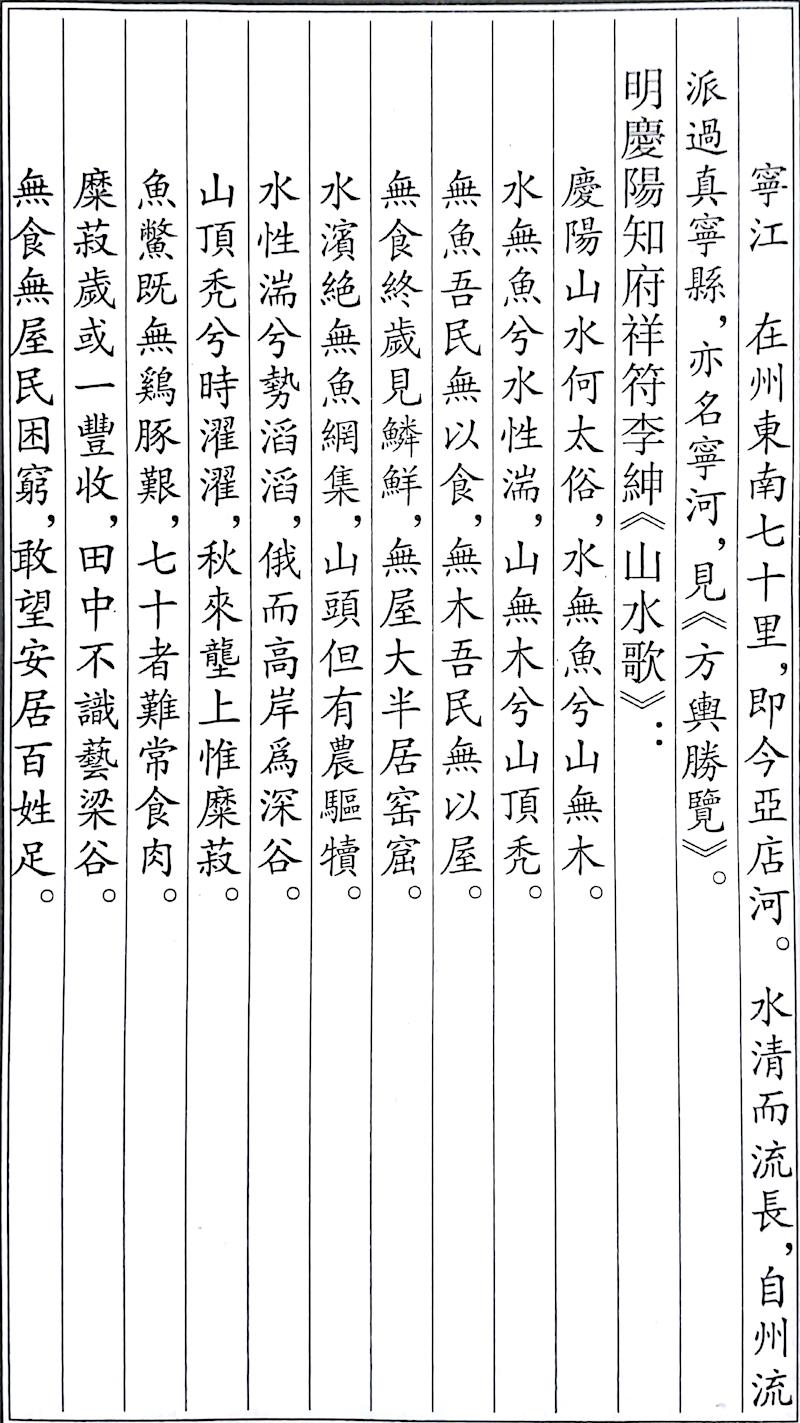 寧江　在州東南七十里，即今亞店河。水清而流長，自州流
派過真寧縣，亦名寧河，見《方輿勝覽》。
明慶陽知府祥符李紳《山水歌》：
慶陽山水何太俗，水無魚兮山無木。
水無魚兮水性湍，山無木兮山頂禿。
無魚吾民無以食，無木吾民無以屋。
無食終歲見鱗鮮，無屋大半居窑窟。
水濱絕無魚網集，山頭但有農驅犢。
水性湍兮勢滔滔，俄而高岸爲深谷。
山頂禿兮時濯濯，秋來壟上惟糜菽。
魚鱉既無鷄豚艱，七十者難常食肉。
糜菽歲或一豐收，田中不識藝梁谷。
無食無屋民困窮，敢望安居百姓足。